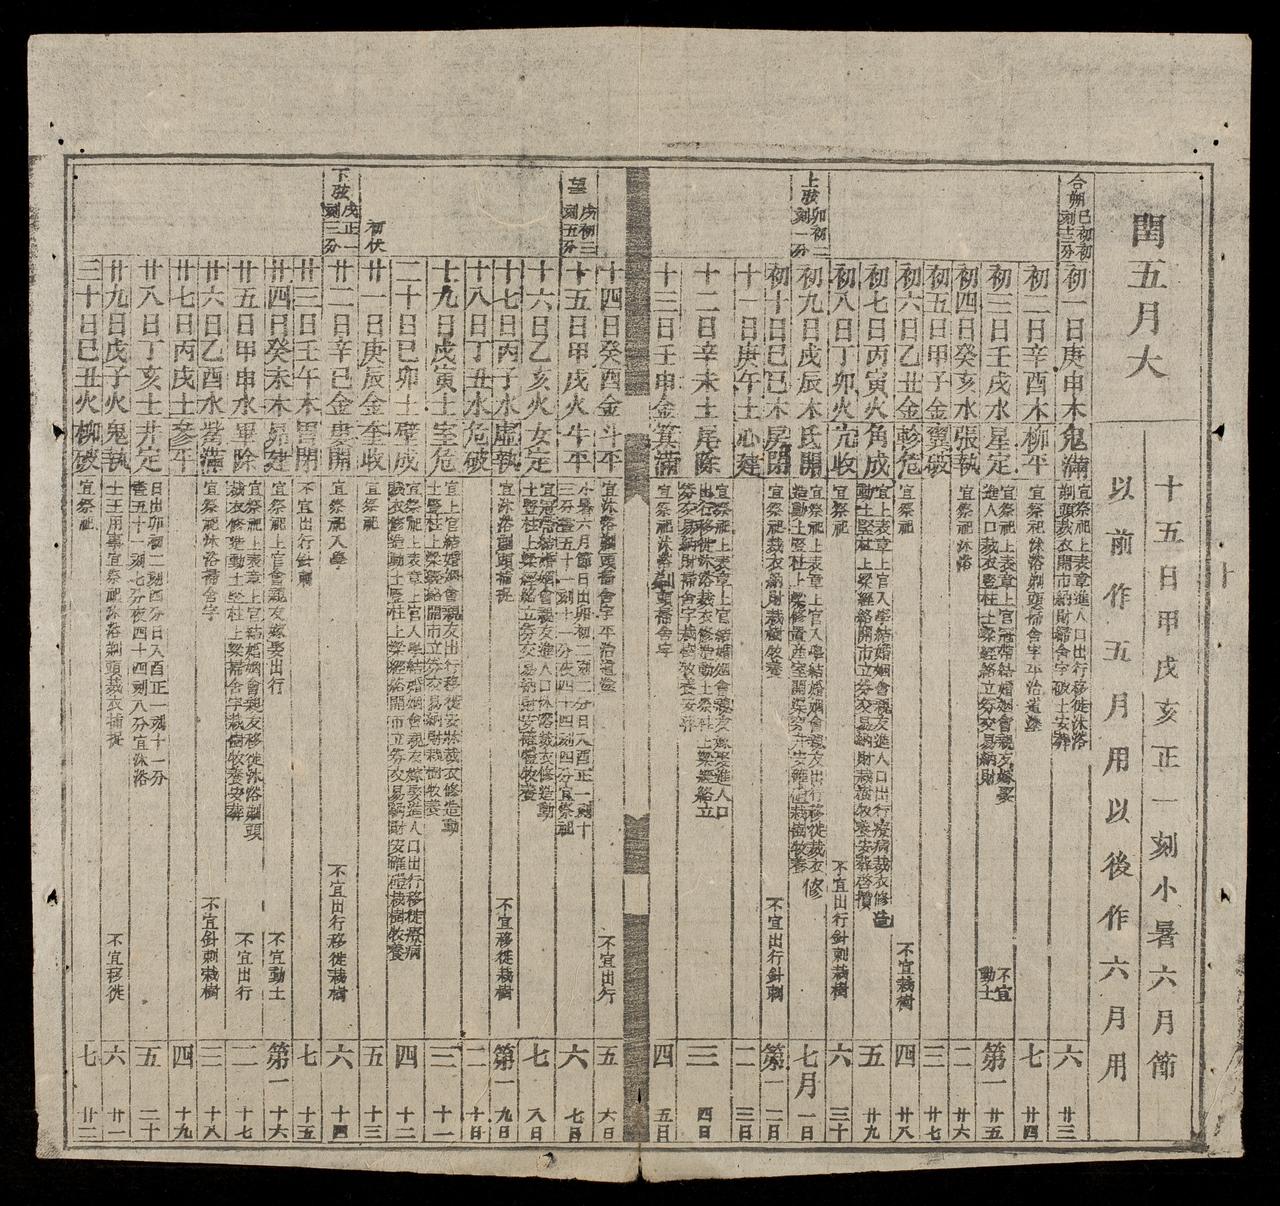 閏五月大
十五日甲戌亥正一刻小暑六月節
以前作五月用以後作六月用
合朔巳初初刻十三分
初一日庚申木鬼滿
宜祭祀上表章進人口出行移徙沐浴
剃頭裁衣開市納財掃舍宇破土安葬
六
廿三
初二日辛酉木柳平
宜祭祀沐浴剃頭掃舍宇平治道塗
七
廿四
初三日壬戌水星定
宜祭祀上表章上官冠帶結婚姻會親友嫁娶
進人口裁衣豎柱上梁經絡立券交易納財
不宜動土
第一
廿五
初四日癸亥水張執
宜祭祀沐浴
二
廿六
初五日甲子金翼破
三
廿七
初六日乙丑金軫危
宜祭祀
不宜栽樹
四
廿八
初七日丙寅火角成
宜上表章上官入學結婚姻會親友進人口出行療病裁衣修造
動土豎柱上梁經絡開市立券交易納財栽樹牧養安葬啓攢
五
廿九
初八日丁卯火亢收
宜祭祀
不宜出行針刺栽樹
六
三十
上弦卯初二刻一分
初九日戊辰木氐開
宜祭祀上表章上官入學結婚姻會親友出行移徙裁衣修
造動土豎柱上梁修置產室開渠穿井安碓磑栽樹牧養
七月
一日
初十日己巳木房閉
宜祭祀裁衣納財栽樹牧養
不宜出行針刺
第一
二日
十一日庚午土心建
二
三日
十二日辛未土尾除
宜祭祀上表章上官結婚姻會親友嫁娶進人口
出行移徙沐浴裁衣修造動土豎柱上梁經絡立
券交易納財掃舍宇栽樹牧養安葬
三
四日
十三日壬申金箕滿
宜祭祀沐浴剃頭掃舍宇
四
五日
十四日癸酉金斗平
宜沐浴剃頭掃舍宇平治道塗
不宜出行
五
六日
望戌初三刻五分
十五日甲戌火牛平
小暑六月節日出卯初二刻二分日入酉正一刻十
三分晝五十一刻十一分夜四十四刻四分宜祭祀
六
七日
十六日乙亥火女定
宜冠帶結婚姻會親友進人口沐浴裁衣修造動
土豎柱上梁經絡立券交易納財安碓磑牧養
七
八日
十七日丙子水虛執
宜沐浴剃頭捕捉
不宜移徙栽樹
第一
九日
十八日丁丑水危破
二
十日
十九日戊寅土室危
宜上官結婚姻會親友出行移徙安牀裁衣修造動
土豎柱上梁經絡開市立券交易納財栽樹牧養
三
十一
二十日己卯土壁成
宜祭祀上表章上官入學結婚姻會親友嫁娶進人口出行移徙療病
裁衣修造動土豎柱上梁經絡開市立券交易納財安碓磑栽樹牧養
四
十二
初伏
廿一日庚辰金奎收
宜祭祀
五
十三
下弦戌正一刻三分
廿二日辛巳金婁開
宜祭祀入學
不宜出行移徙栽樹
六
十四
廿三日壬午木胃閉
不宜出行針刺
七
十五
廿四日癸未木昴建
宜祭祀上官會親友嫁娶出行
不宜動土
第一
十六
廿五日甲申水畢除
宜祭祀上表章上官結婚姻會親友移徙沐浴剃頭
裁衣修造動土豎柱上梁掃舍宇栽樹牧養安葬
不宜出行
二
十七
廿六日乙酉水觜滿
宜祭祀沐浴掃舍宇
不宜針刺栽樹
三
十八
廿七日丙戌土參平
四
十九
廿八日丁亥土井定
日出卯初二刻四分日入酉正一刻十一分
晝五十一刻七分夜四十四刻八分宜沐浴
五
二十
廿九日戊子火鬼執
土王用事宜祭祀沐浴剃頭裁衣捕捉
不宜移徙
六
廿一
三十日己丑火柳破
宜祭祀
七
廿二